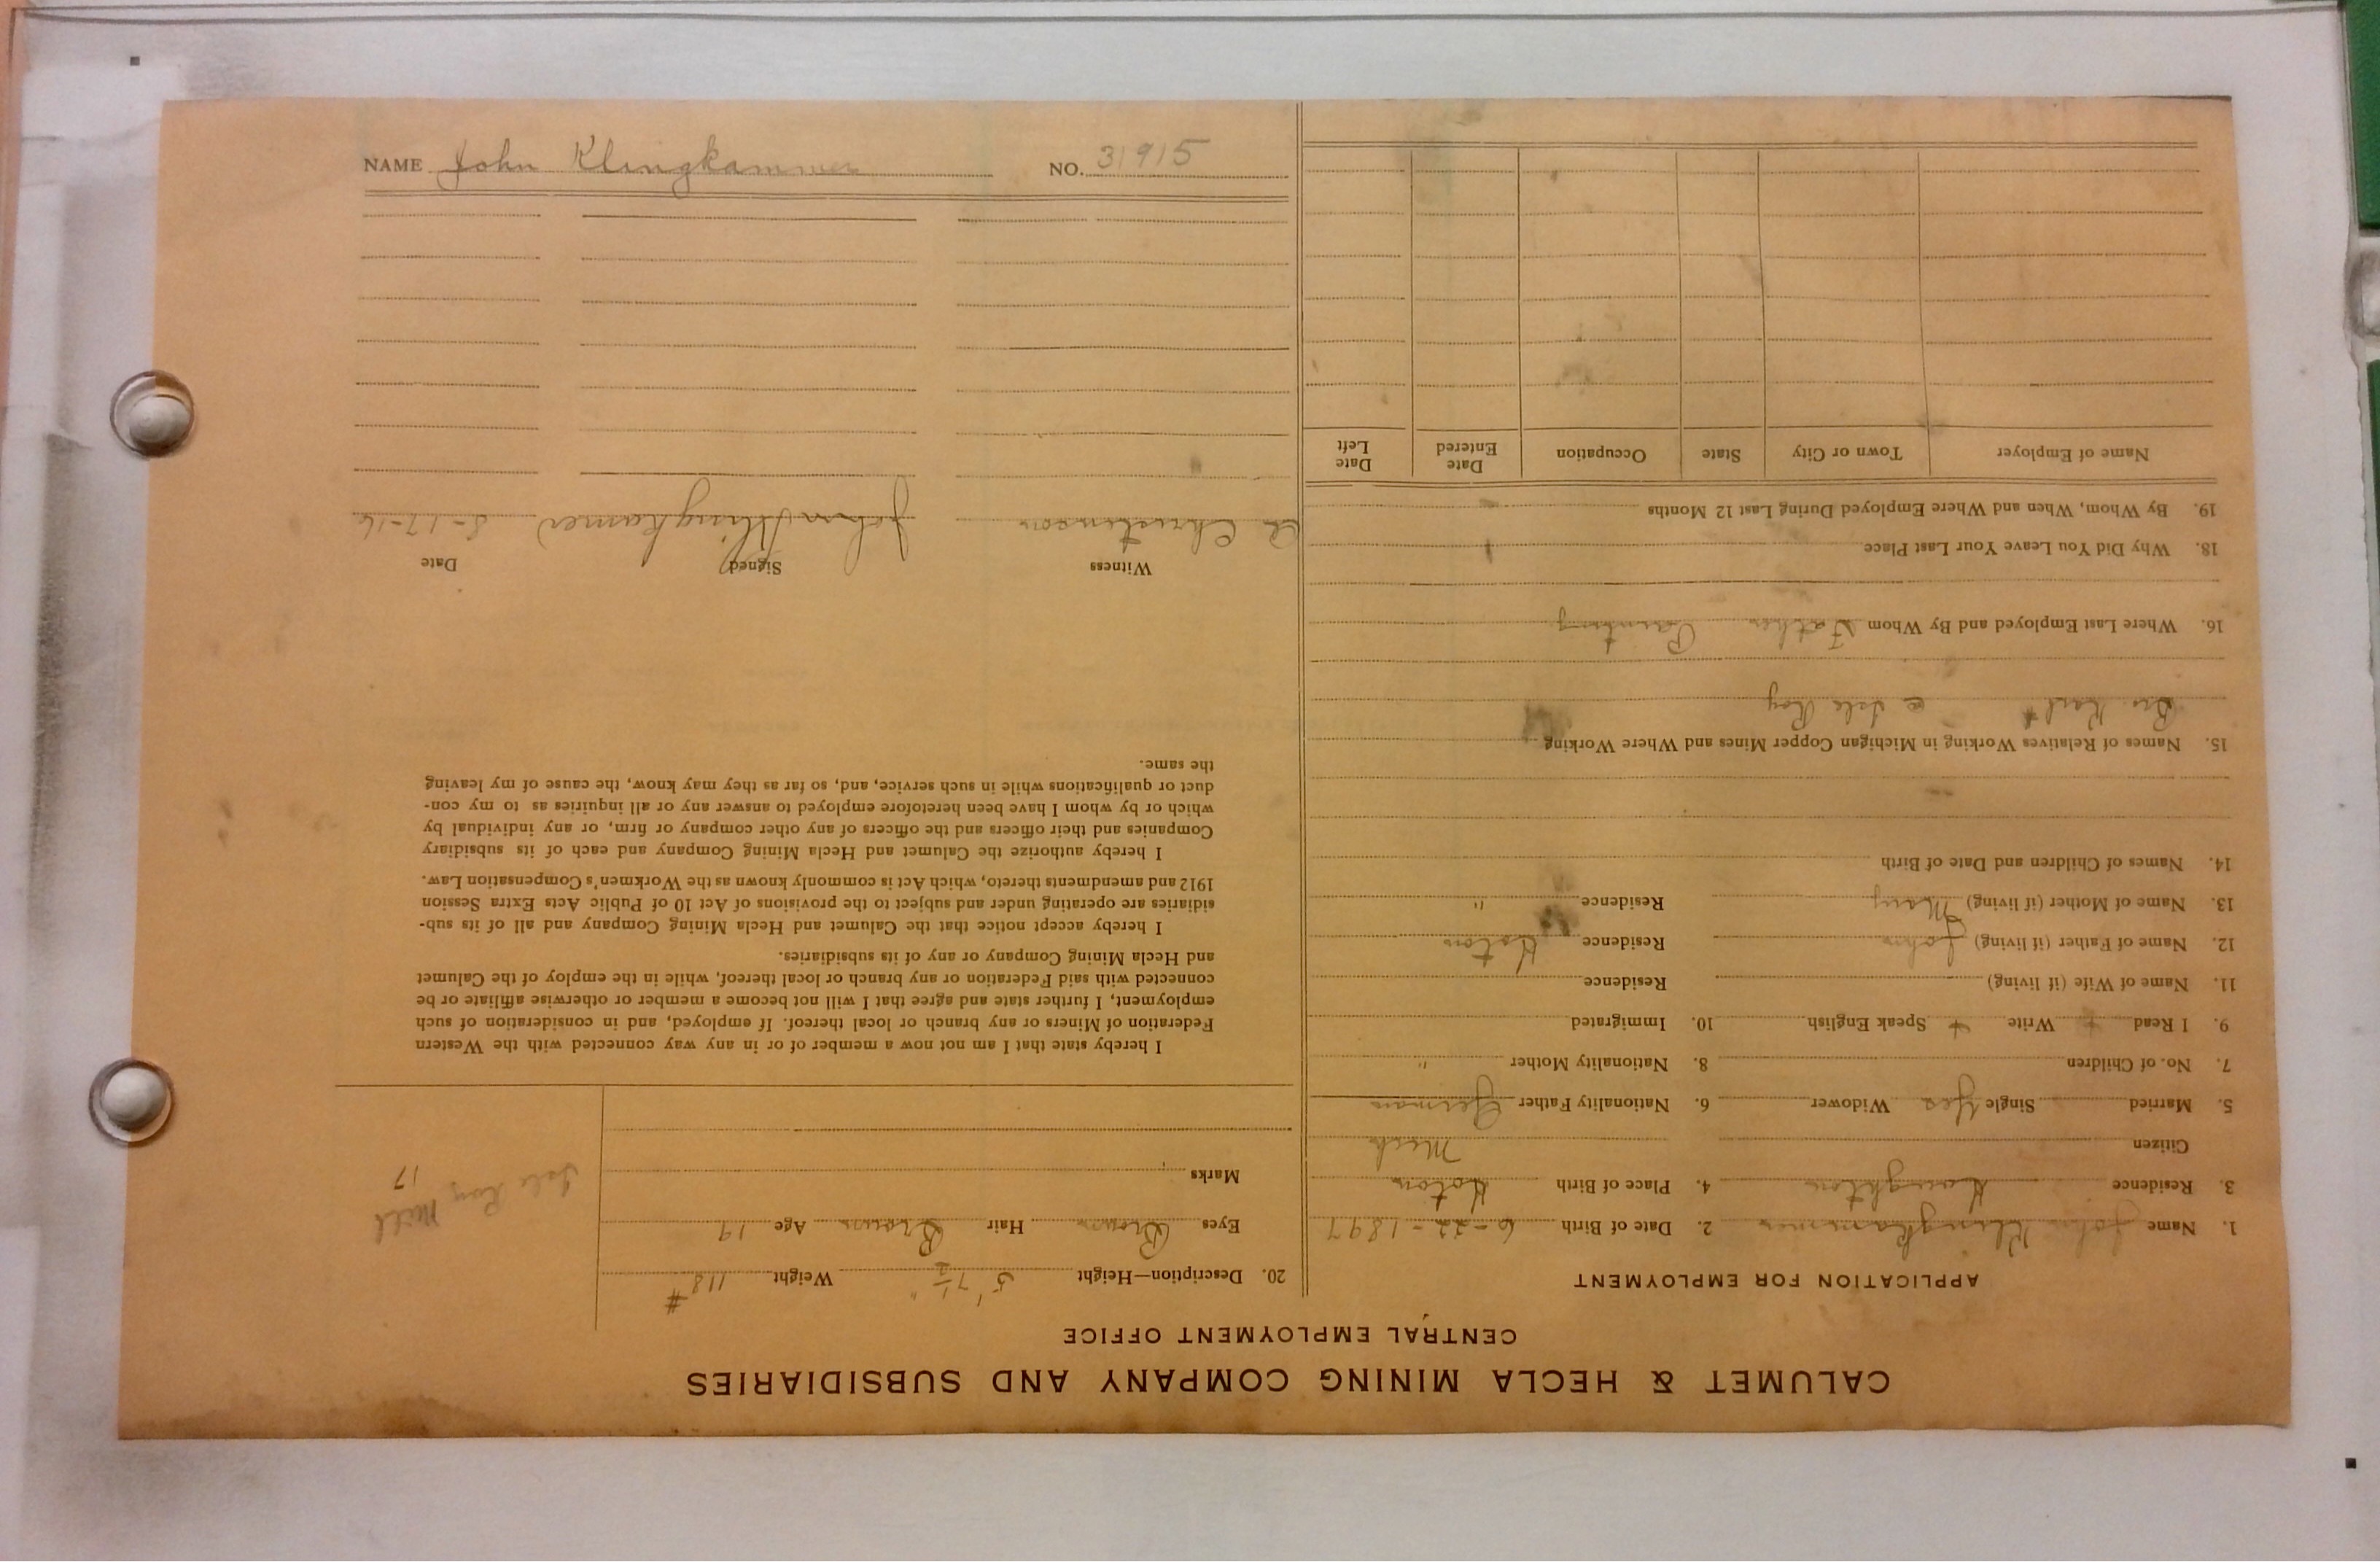 CALUMET & HECLA MINING COMPANY AND SUBSIDIARIES
CENTRAL EMPLOYMENT OFFICE
APPLICATION FOR EMPLOYMENT
1. Name John Klingkammer 2. Date of Birth 6-22-1897
3. Residence Houghton 4. Place of Birth Hoton
Citizen Mich
5. Married Single Yes Widower 6. Nationality Father German
7. No. of Children 8. Nationality Mother "
9. I Read + Write + Speak English 10. Immigrated
11. Name of Wife (if living) Residence
12. Name of Father (if living) John Residence Hoton
13. Name of Mother (if living) Mary Residence "
14. Names of Children and Date of Birth
15. Names of Relatives Working in Michigan Copper Mines and Where Working
Bro Karl @ Isle Roy
16. Where Last Employed and By Whom Father Painting
18. Why Did You Leave Your Last Place
19. By Whom, When and Where Employed During Last 12 Months
Name of Employer Town or City State Occupation Date Entered Date Left
20. Description—Height 5' 7 1/2" Weight 118 #
Eyes Brown Hair Brown Age 19
Marks
Isle Roy Mill
17
I hereby state that I am not now a member of or in any way connected with the Western
Federation of Miners or any branch or local thereof. If employed, and in consideration of such
employment, I further state and agree that I will not become a member or otherwise affiliate or be
connected with said Federation or any branch or local thereof, while in the employ of the Calumet
and Hecla Mining Company or any of its subsidiaries.
I hereby accept notice that the Calumet and Hecla Mining Company and all of its sub-
sidiaries are operating under and subject to the provisions of Act 10 of Public Acts Extra Session
1912 and amendments thereto, which Act is commonly known as the Workmen's Compensation Law.
I hereby authorize the Calumet and Hecla Mining Company and each of its subsidiary
Companies and their officers and the officers of any other company or firm, or any individual by
which or by whom I have been heretofore employed to answer any or all inquiries as to my con-
duct or qualifications while in such service, and, so far as they may know, the cause of my leaving
the same.
Witness Signed Date
Christenson John Klingkamer 8-17-16
NAME John Klingkammer NO. 31915